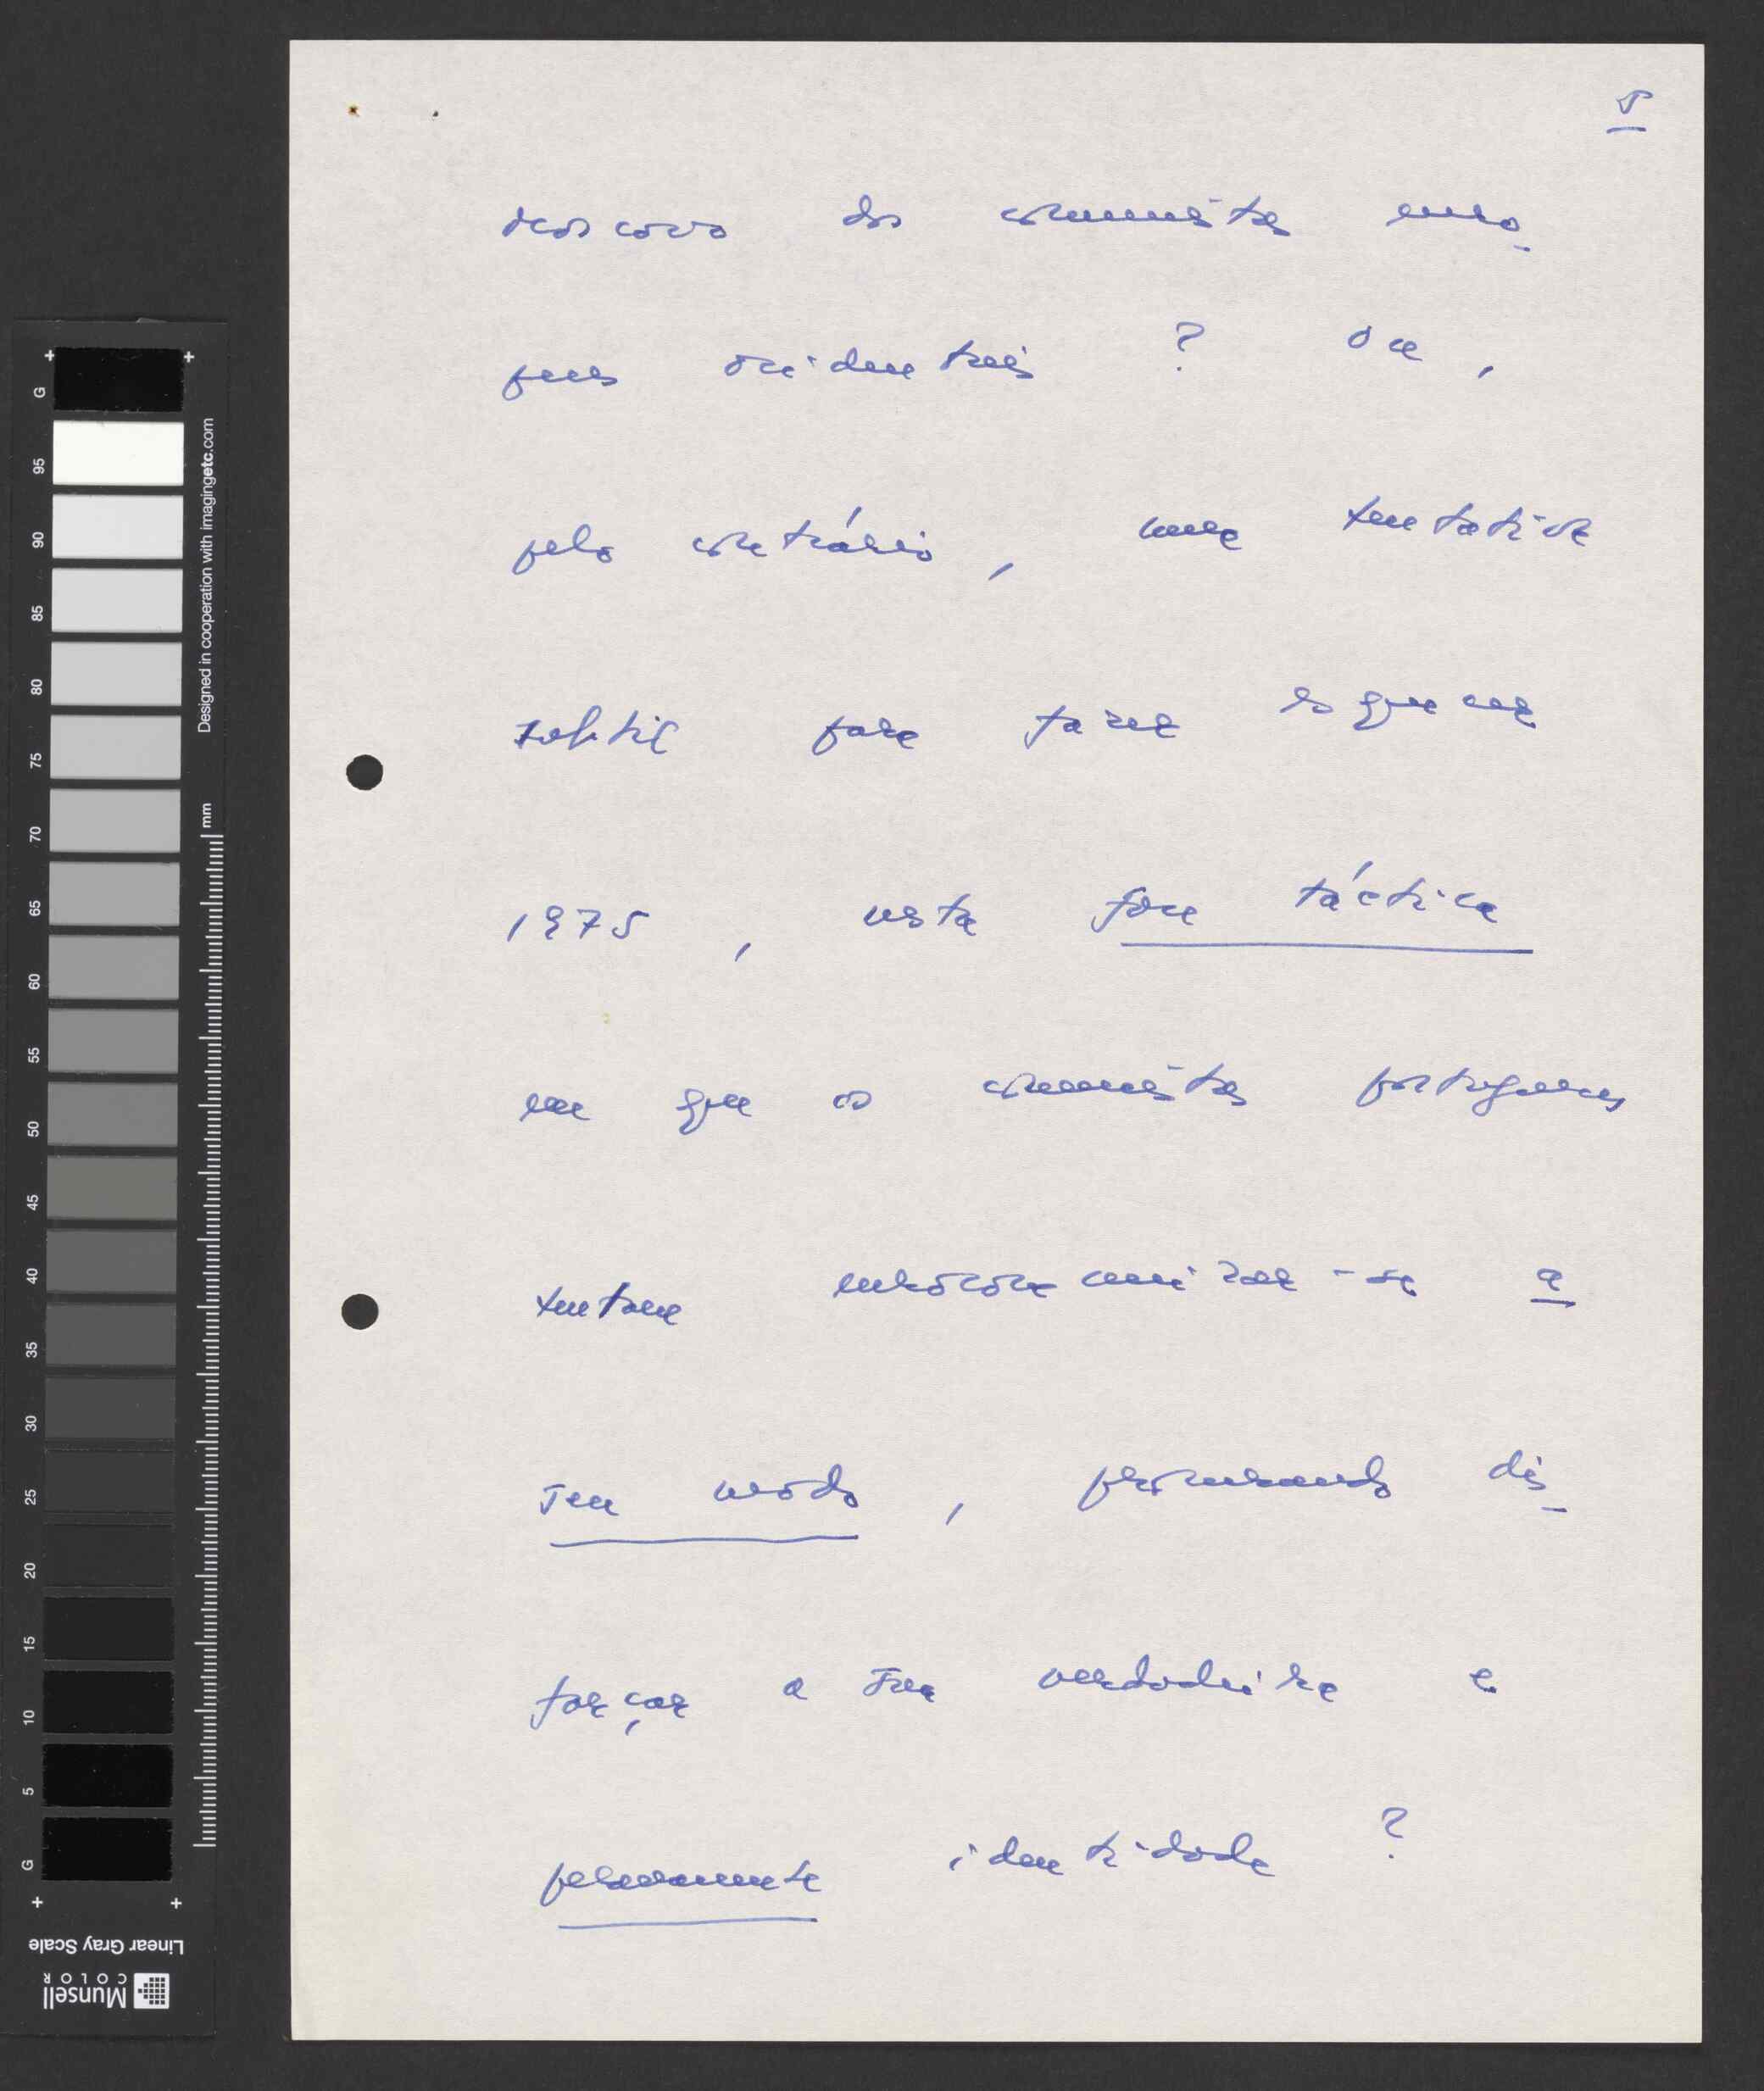 5
Moscovo dos comunistas euro-
peus ocidentais ? Ou ,
pelo contrário , uma tentativa
subtil para fazer esquecer
1975 , nesta fase táctica
em que os comunistas portugueses
tentam eurocomunizar-se a
seu modo , procurando dis-
farçar a sua verdadeira e
identidade ?
G
95
90
85
80
75
70
65
60
55
50
45
40
35
30
25
20
15
10
5
G
Designed in cooperation with imagingetc.com
mm
Linear Gray Scale
Munsell
COLOR